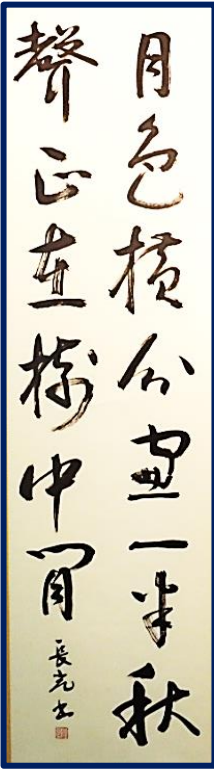 月色横分窓一半秋
聲正在樹中間
長亮書